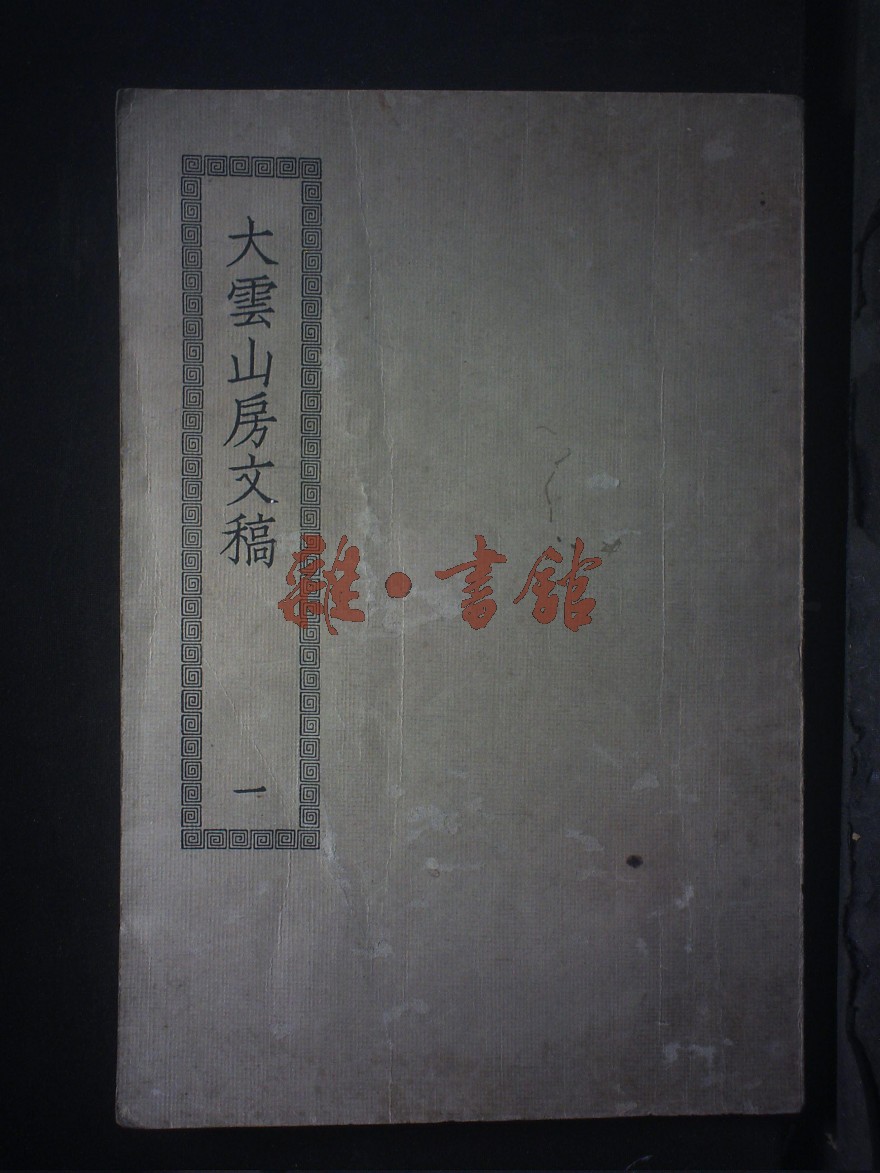 大雲山房文稿
一
雜·書館